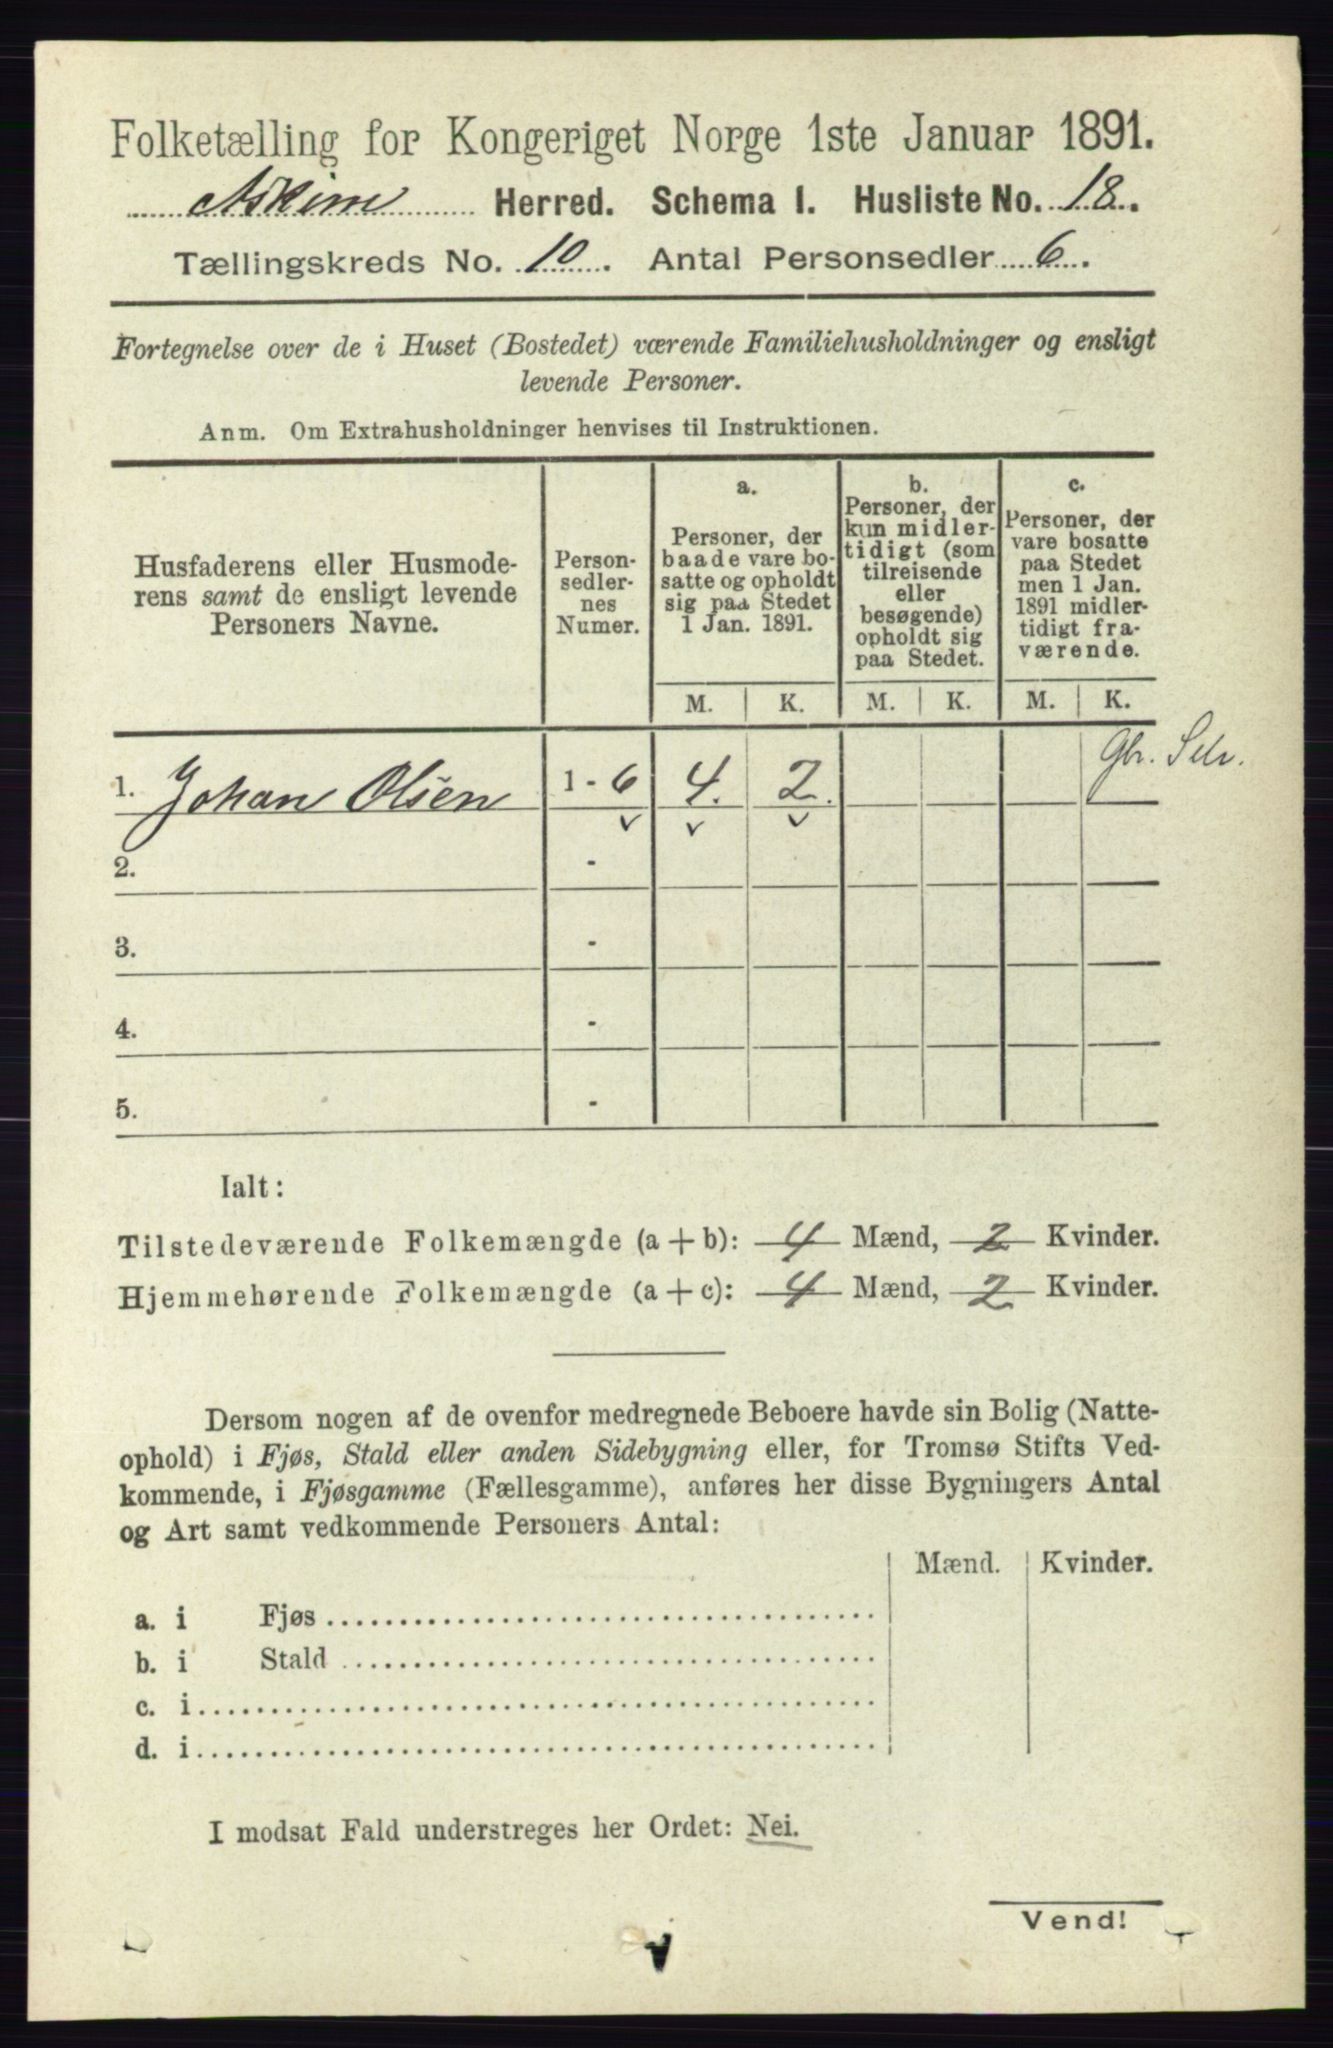 Folketælling for Kongeriget Norge 1ste Januar 1891.
Askim Herred. Schema I. Husliste No. 18.
Tællingskreds No. 10. Antal Personsedler 6.
Fortegnelse over de i Huset (Bostedet) værende Familiehusholdninger og ensligt
levende Personer.
Anm. Om Extrahusholdninger henvises til Instruktionen.
Husfaderens eller Husmode-
rens samt de ensligt levende
Personers Navne.
Person-
sedler-
nes
Numer.
a.
Personer, der
baade vare bo-
satte og opholdt
sig paa Stedet
1 Jan. 1891.
b.
Personer, der
kun midler-
tidigt (som
tilreisende
eller
besøgende)
opholdt sig
paa Stedet.
c.
Personer, der
vare bosatte
paa Stedet
men 1 Jan.
1891 midler-
tidigt fra-
værende.
M. K. M. K. M. K.
1. Johan Olsen 1 - 6 4. 2. Gbr. Selv.
2. -
3. -
4. -
5. -
Ialt:
Tilstedeværende Folkemængde (a + b): 4 Mænd, 2 Kvinder.
Hjemmehørende Folkemængde (a + c): 4 Mænd, 2 Kvinder.
Dersom nogen af de ovenfor medregnede Beboere havde sin Bolig (Natte-
ophold) i Fjøs, Stald eller anden Sidebygning eller, for Tromsø Stifts Ved-
kommende, i Fjøsgamme (Fællesgamme), anføres her disse Bygningers Antal
og Art samt vedkommende Personers Antal:
Mænd. Kvinder.
a. i Fjøs
b. i Stald
c. i
d. i
I modsat Fald understreges her Ordet: Nei.
Vend!